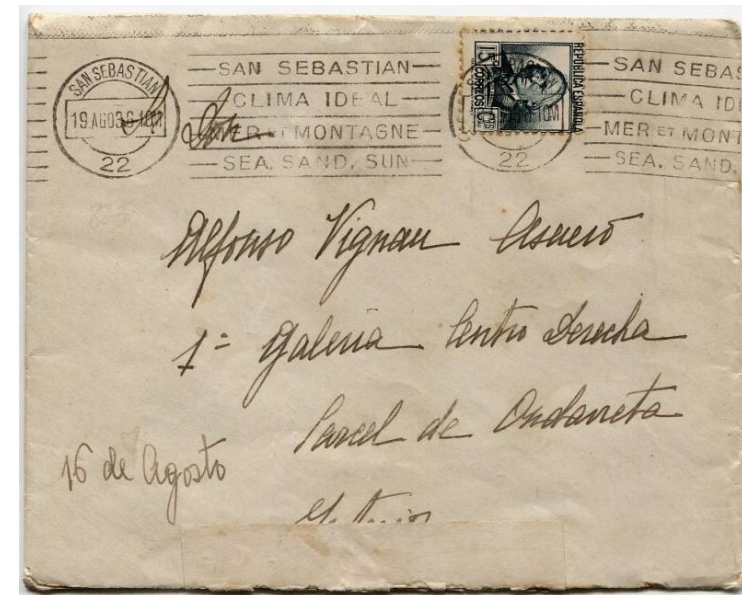 SAN SEBASTIAN
19.AGO36.10M
22
SAN SEBASTIAN
CLIMA IDEAL
MER ET MONTAGNE
SEA, SAND, SUN
REPUBLICA ESPAÑOLA
15 CTS
CORREOS
22
SAN SEBAS
CLIMA IDE
MER ET MONT
SEA, SAND,
Sr. Don
Alfonso Vignau Asuero
1ª Galeria Centro Derecha
Carcel de Ondarreta
16 de Agosto